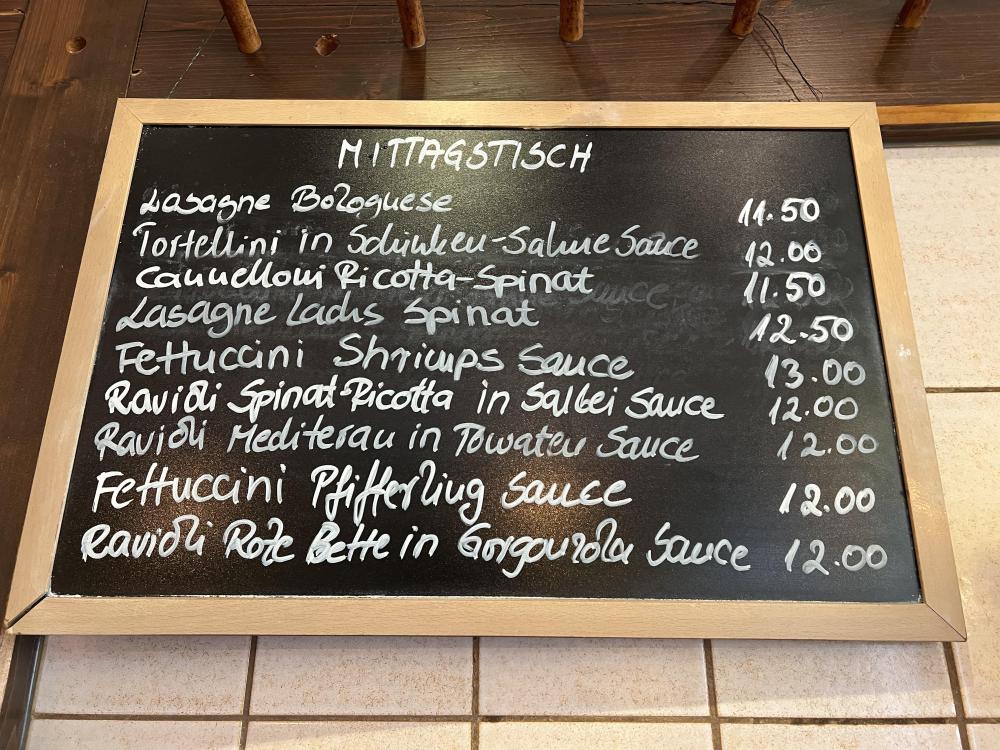 MITTAGSTISCH
Lasagne Bolognese 11.50
Tortellini in Schinken-Sahne Sauce 12.00
Cannelloni Ricotta-Spinat 11.50
Lasagne Lachs Spinat 12.50
Fettuccini Shrimps Sauce 13.00
Ravioli Spinat-Ricotta in Salbei Sauce 12.00
Ravioli Mediteran in Tomaten Sauce 12.00
Fettuccini Pfifferling Sauce 12.00
Ravioli Rote Bette in Gorgonzola Sauce 12.00